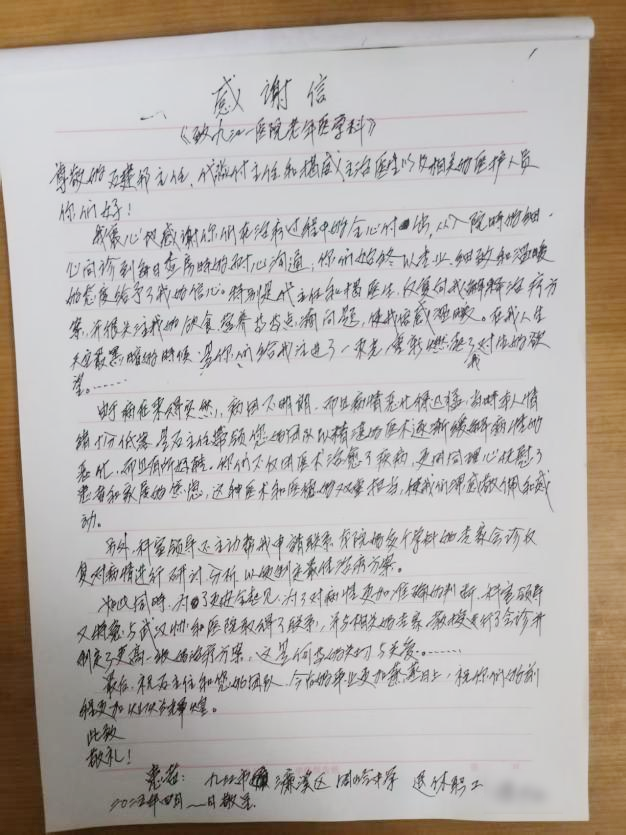 感谢信
《致九江一医院老年医学科》
尊敬的 主任、代 主任和杨 主治医生以及相关的医护人员
你们好！
我衷心地感谢你们在治病过程中的全心付出，从入院时的细
心问诊到每日查房时的耐心沟通，你们始终以专业、细致和温暖
的态度给予了我的信心。特别是代主任和杨医生，反复向我解释治病方
案，并很关注我的饮食营养 点滴问题，使我倍感温暖。在我人生
最黑暗的时候，是你们给我注进了一束光，重新燃起了我对生的欲
望。……
由于病症来得突然，病因不明朗，而且病情恶化得迅猛，当时本人情
绪十分低落，是 主任带领您的团队以精湛的医术逐渐缓解病情的
恶化，而且有所好转，你们不仅用医术治愈了疾病，更用同理心抚慰了
患者和家属的焦虑，这种医术和医德的双重担当，使我们深感敬佩和感
动。
另外，科室领导还主动帮我申请联系 院的各个学科的专家会诊反
复对病情进行研讨、分析，以便制定最佳治病方案。
与此同时，为了更进全起见，为了对病情更加准确的判断，科室领导
又特意与武汉协和医院取得了联系，并与相关的专家、教授进行了会诊并
制定了更高一级的治病方案，这是何等的关切与关爱。……
最后，祝 主任和您的团队，今后的事业更加蒸蒸日上，祝你们的前
程更加灿烂辉煌。
此致
敬礼！
患者：九江市濂溪区 中学 退休职工
2025年四月一日敬呈